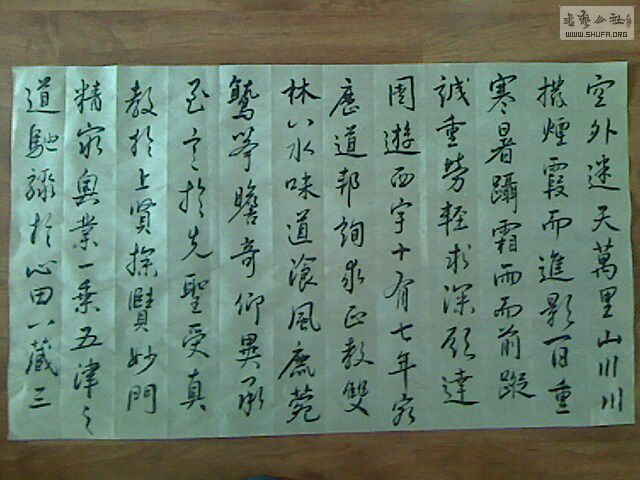 空外迷天萬里山川川
撥煙霞而進影百重
寒暑躡霜雨而前蹤
誠重勞輕求深願達
周遊西宇十有七年窮
歷道邦詢求正教雙
林八水味道飡風鹿菀
鷲峯瞻奇仰異承
至言於先聖受真
教於上賢探賾妙門
精窮奧業一乘五津之
道馳驟於心田八藏三
WWW.SHUFA.ORG